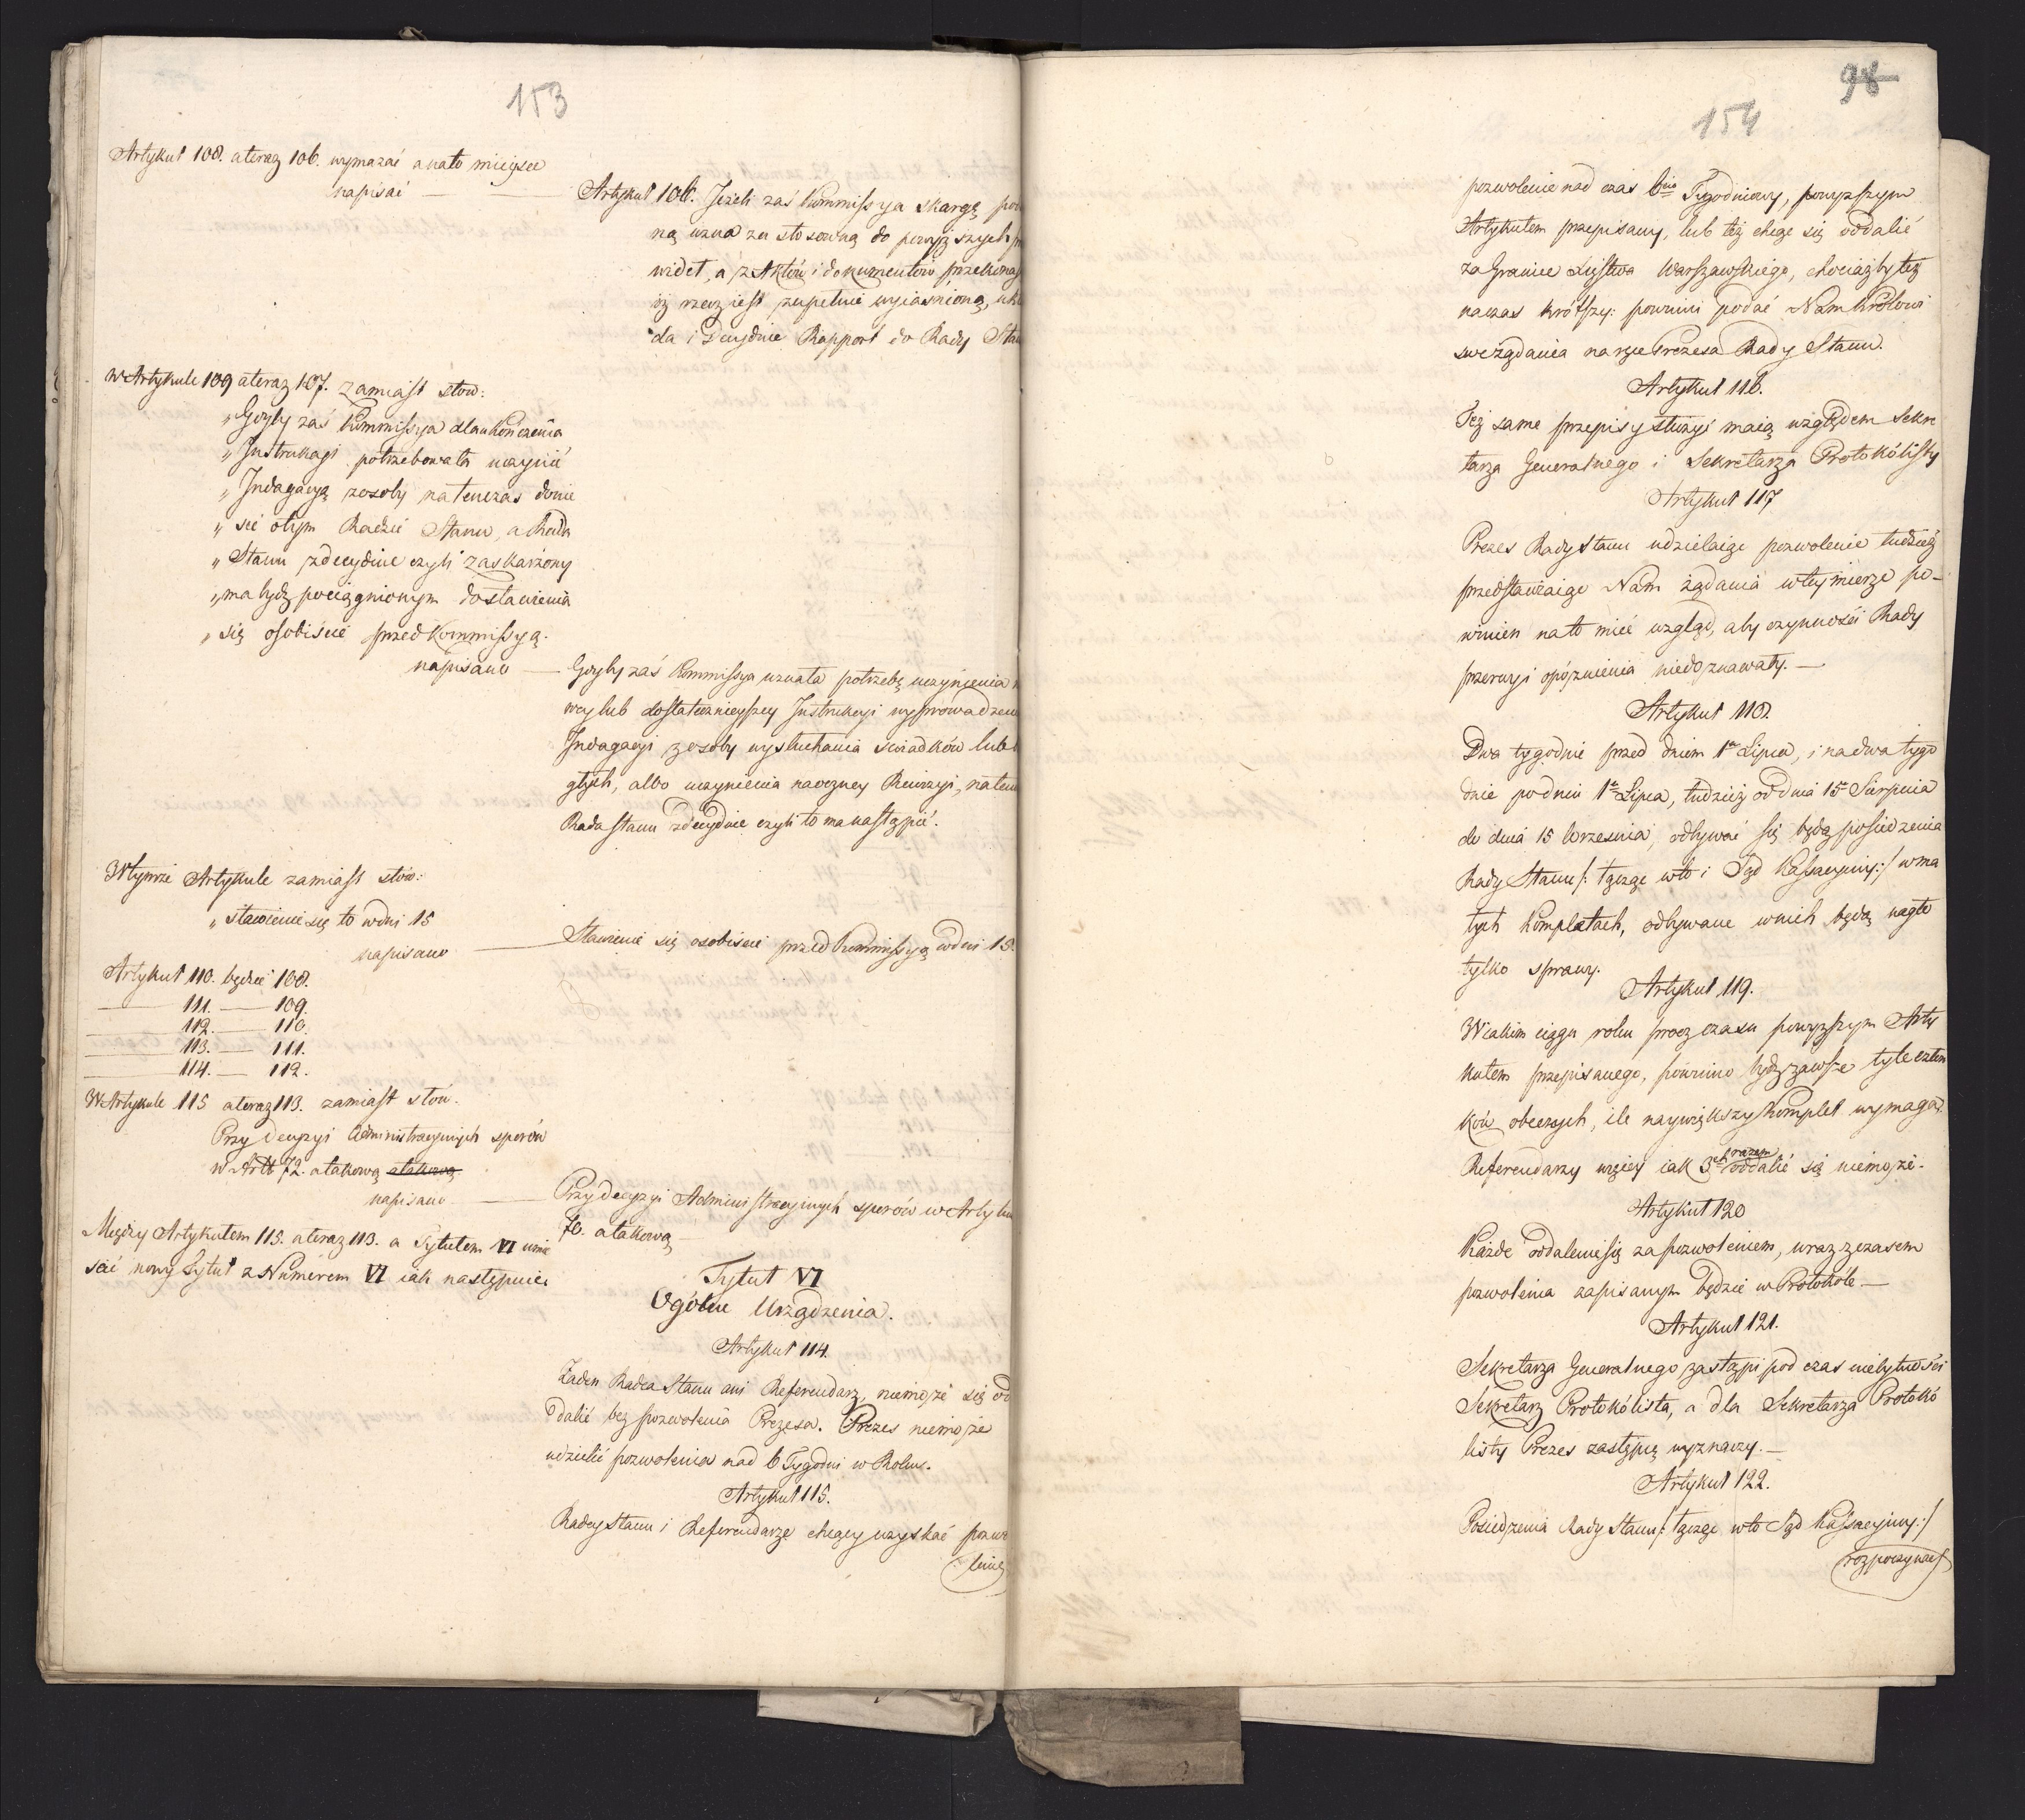 153
Artykuł 108. a teraz 106. wymazać a na to mieysce
napisać —
Artykuł 106. Jeżeli zaś Kommissya skargę
ną uzna za stosowną do powyższych
wideł, a z Aktów i dokumentów przekona
iż rzecz iest zupełnie wyiaśnioną,
da i Decyduie Rapport do Rady
W Artykule 109 a teraz 107. zamiast słow:
„Gdyby zaś Kommissya dla ukończenia
„Instrukcyi potrzebowała uczynić
„Indagacyą z osoby natenczas donie
„sie o tym Radzie Stanu, a Rada
„Stanu zdecyduie czyli zaskarżony
„ma bydź pociągnionym do stawienia
„się osobiście przed Kommissyą.
napisano —
Gdyby zaś Kommissya uznała potrzebę uczynienia
wey lub dostatecznieyszey Instrukcyi wyprowadzenia
Indagacyi z osoby wysłuchania świadków lub
głych, albo uczynienia naoczney Rewizyi,
Rada Stanu zdecyduie czyli to ma nastąpić.
W tymże Artykule zamiast słów:
„stawienie się to w dni 15
napisano —
Stawienie się osobiście przed Kommissyą w dni 15.
Artykuł 110. będzie 108.
— 111. — 109.
— 112. — 110.
— 113. — 111.
— 114. — 112.
W Artykule 115 a teraz 113. zamiast słow.
Przy decyzyi Administracyinych sporów
w Artt 72. atakową atakową
napisano —
Przy decyzyi Administracyinych sporów w Artyku
70. atakową
Między Artykułem 115. a teraz 113. a Tytułem VI umie
ścić nowy Tytuł z Numerem VI iak następuie:
Tytuł VI
Ogólne Urządzenia.
Artykuł 114.
Żaden Radca Stanu ani Referendarz, niemoże się od
dalić bez pozwolenia Prezesa. Prezes niemoże
udzielić pozwolenia nad 6 Tygodni w Roku.
Artykuł 115.
Radcy Stanu i Referendarze chcący uzyskać pozwo
lenie
98
154
pozwolenie nad czas 6cio Tygodniowy, powyższym
Artykułem przepisany, lub też chcąc się oddalić
za Granice Xięstwa Warszawskiego, chociażby też
na czas krótszy: powinni podać Nam Królowi
swe żądania na ręce Prezesa Rady Stanu.
Artykuł 116.
Też same przepisy służyć maią względem Sekre
tarza Generalnego i Sekretarza Protokólisty
Artykuł 117
Prezes Rady Stanu udzielaiąc pozwolenie tudzież
przedstawiaiąc Nam żądania w tey mierze po-
winien na to mieć wzgląd, aby czynności Rady
przerwy i opóźnienia niedoznawały. —
Artykuł 118.
Dwa tygodnie przed dniem 1m Lipca, i na dwa tygo
dnie po dniu 1m Lipca, tudzież od dnia 15 Sierpnia
do dnia 15 Września, odbywać się będą posiedzenia
Rady Stanu /: łącząc w to i Sąd Kassacyiny :/ w ma
łych kompletach, odbywane w nich będą nagłe
tylko sprawy.
Artykuł 119.
W całkim ciągu roku procz czasu powyższym Arty
kułem przepisanego, powinno bydź zawsze tyle człon
ków obecnych, ile naywiększy Komplet wymaga.
Referendarzy więcey iak 3ch razem oddalić się niemoże.
Artykuł 120
Każde oddalenie się za pozwoleniem, wraz z czasem
pozwolenia zapisanym będzie w Protokóle —
Artykuł 121.
Sekretarza Generalnego zastąpi pod czas niebytności
Sekretarz Protokólista, a dla Sekretarza Protokó
listy Prezes zastępcę wyznaczy. —
Artykuł 122.
Posiedzenia Rady Stanu /: łącząc w to Sąd Kassacyiny :/
rozpoczynać